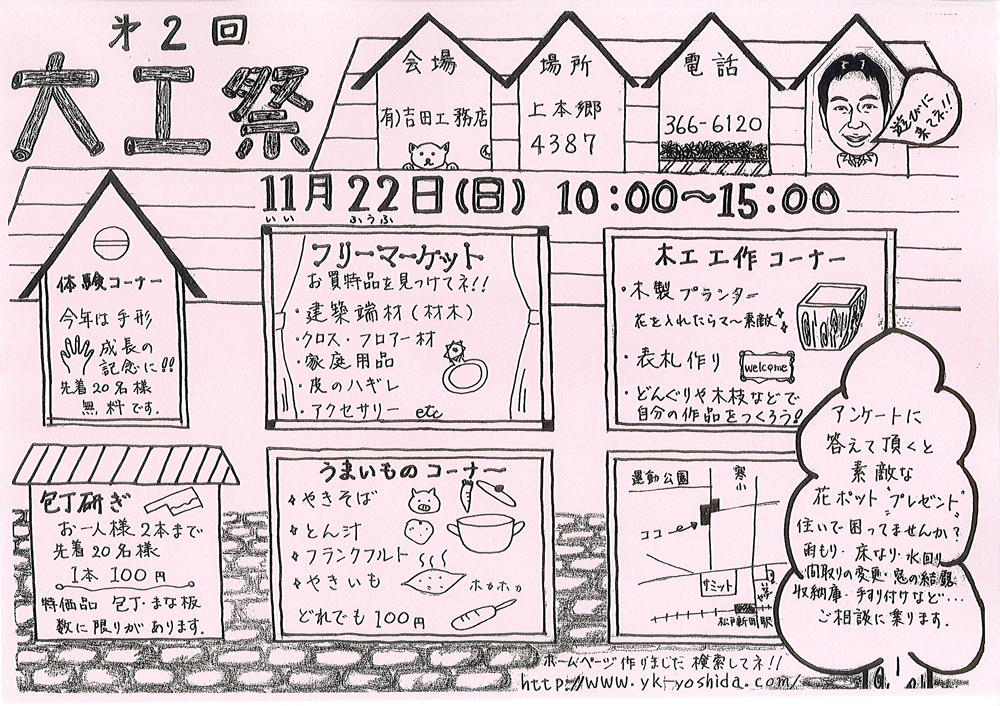 第2回
大工祭
会場
有)吉田工務店
場所
上本郷
4387
電話
366-6120
遊びに
来てネ!!
11月22日(日) 10:00～15:00
いい ふうふ
体験コーナー
今年は手形
成長の
記念に!!
先着20名様
無料です.
フリーマーケット
お買特品を見つけてネ!!
・建築端材(材木)
・クロス・フロアー材
・家庭用品
・皮のハギレ
・アクセサリー etc
木工工作コーナー
・木製プランター
花を入れたらマ～素敵
・表札作り
welcome
・どんぐりや木枝などで
自分の作品をつくろう!
包丁研ぎ
お一人様2本まで
先着20名様
1本 100円
特価品 包丁・まな板
数に限りがあります.
うまいものコーナー
やきそば
とん汁
フランクフルト
やきいも
ホカホカ
どれでも100円
運動公園
寒小
ココ
サミット
松戸新田駅
アンケートに
答えて頂くと
素敵な
花ポット"プレゼント"
住いで困ってませんか?
雨もり・床なり・水回り
間取りの変更・窓の結露
収納庫・手すり付けなど・・・
ご相談に乗ります.
ホームページ作りました 検索してネ!!
http://www.yk-yoshida.com/